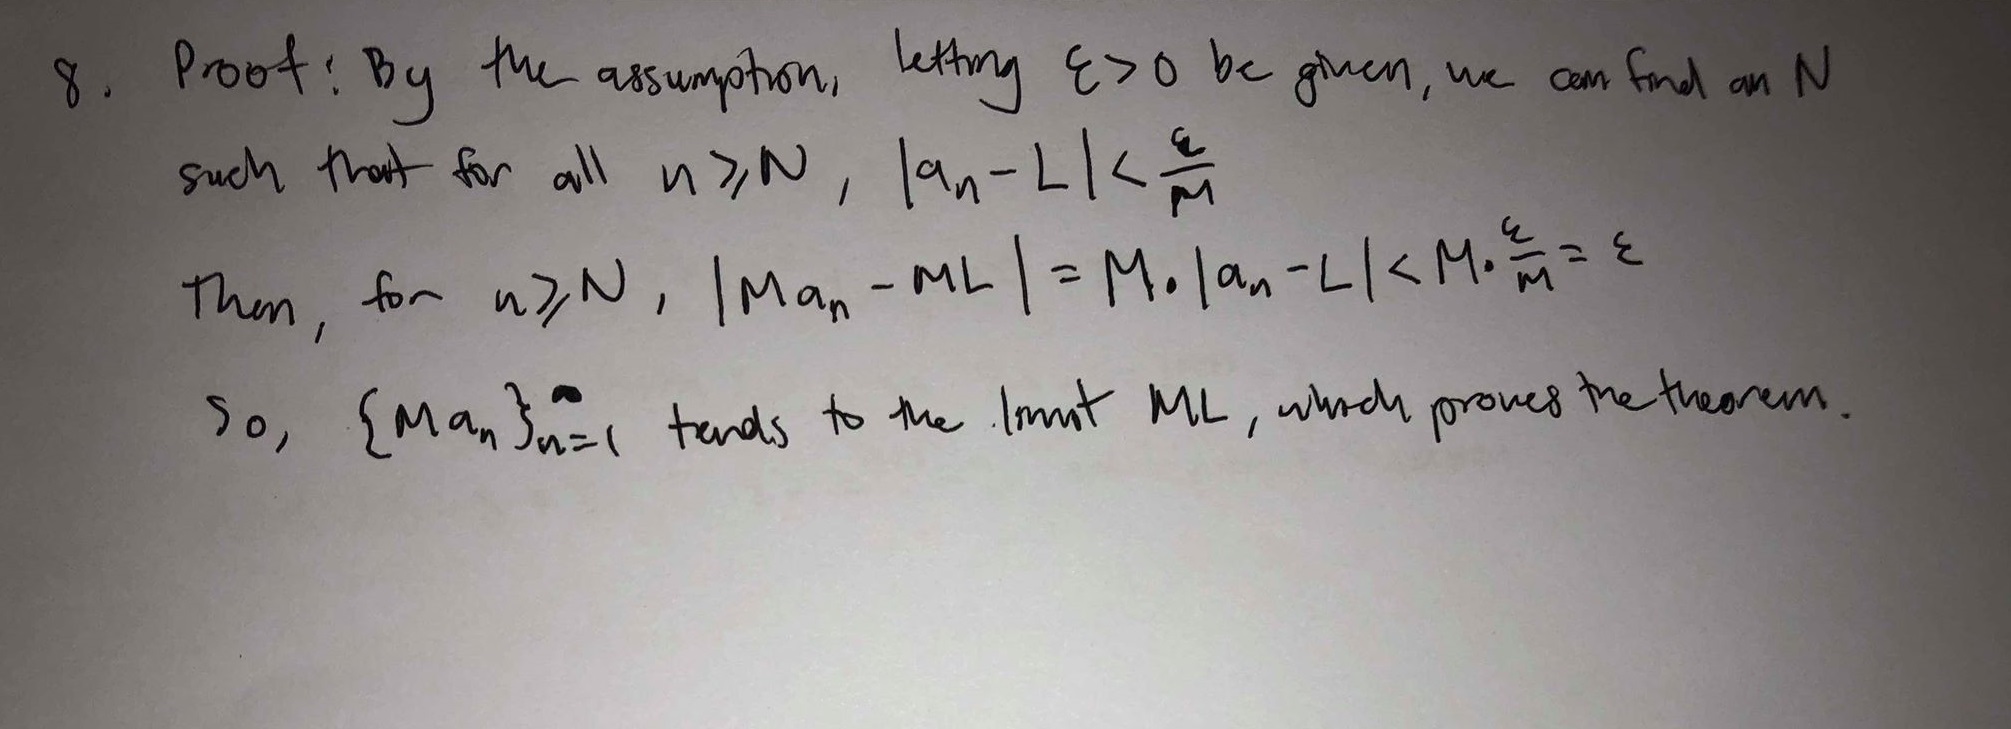 8. Proof: By the assumption, letting ε>0 be given, we can find an N
such that for all n⩾N, |aₙ-L|< ε/M
Then, for n⩾N, |Maₙ-ML|=M.|aₙ-L|<M.ε/M=ε
So, {Maₙ}∞n=1 tends to the limit ML, which proves the theorem.